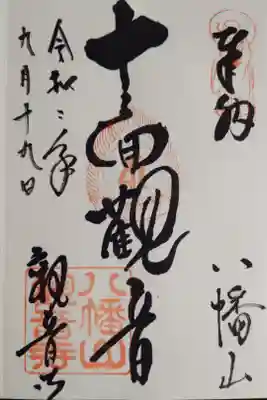 奉納
八幡山
十一面觀音
令和二年
九月十九日
觀音寺
八幡山
觀音寺